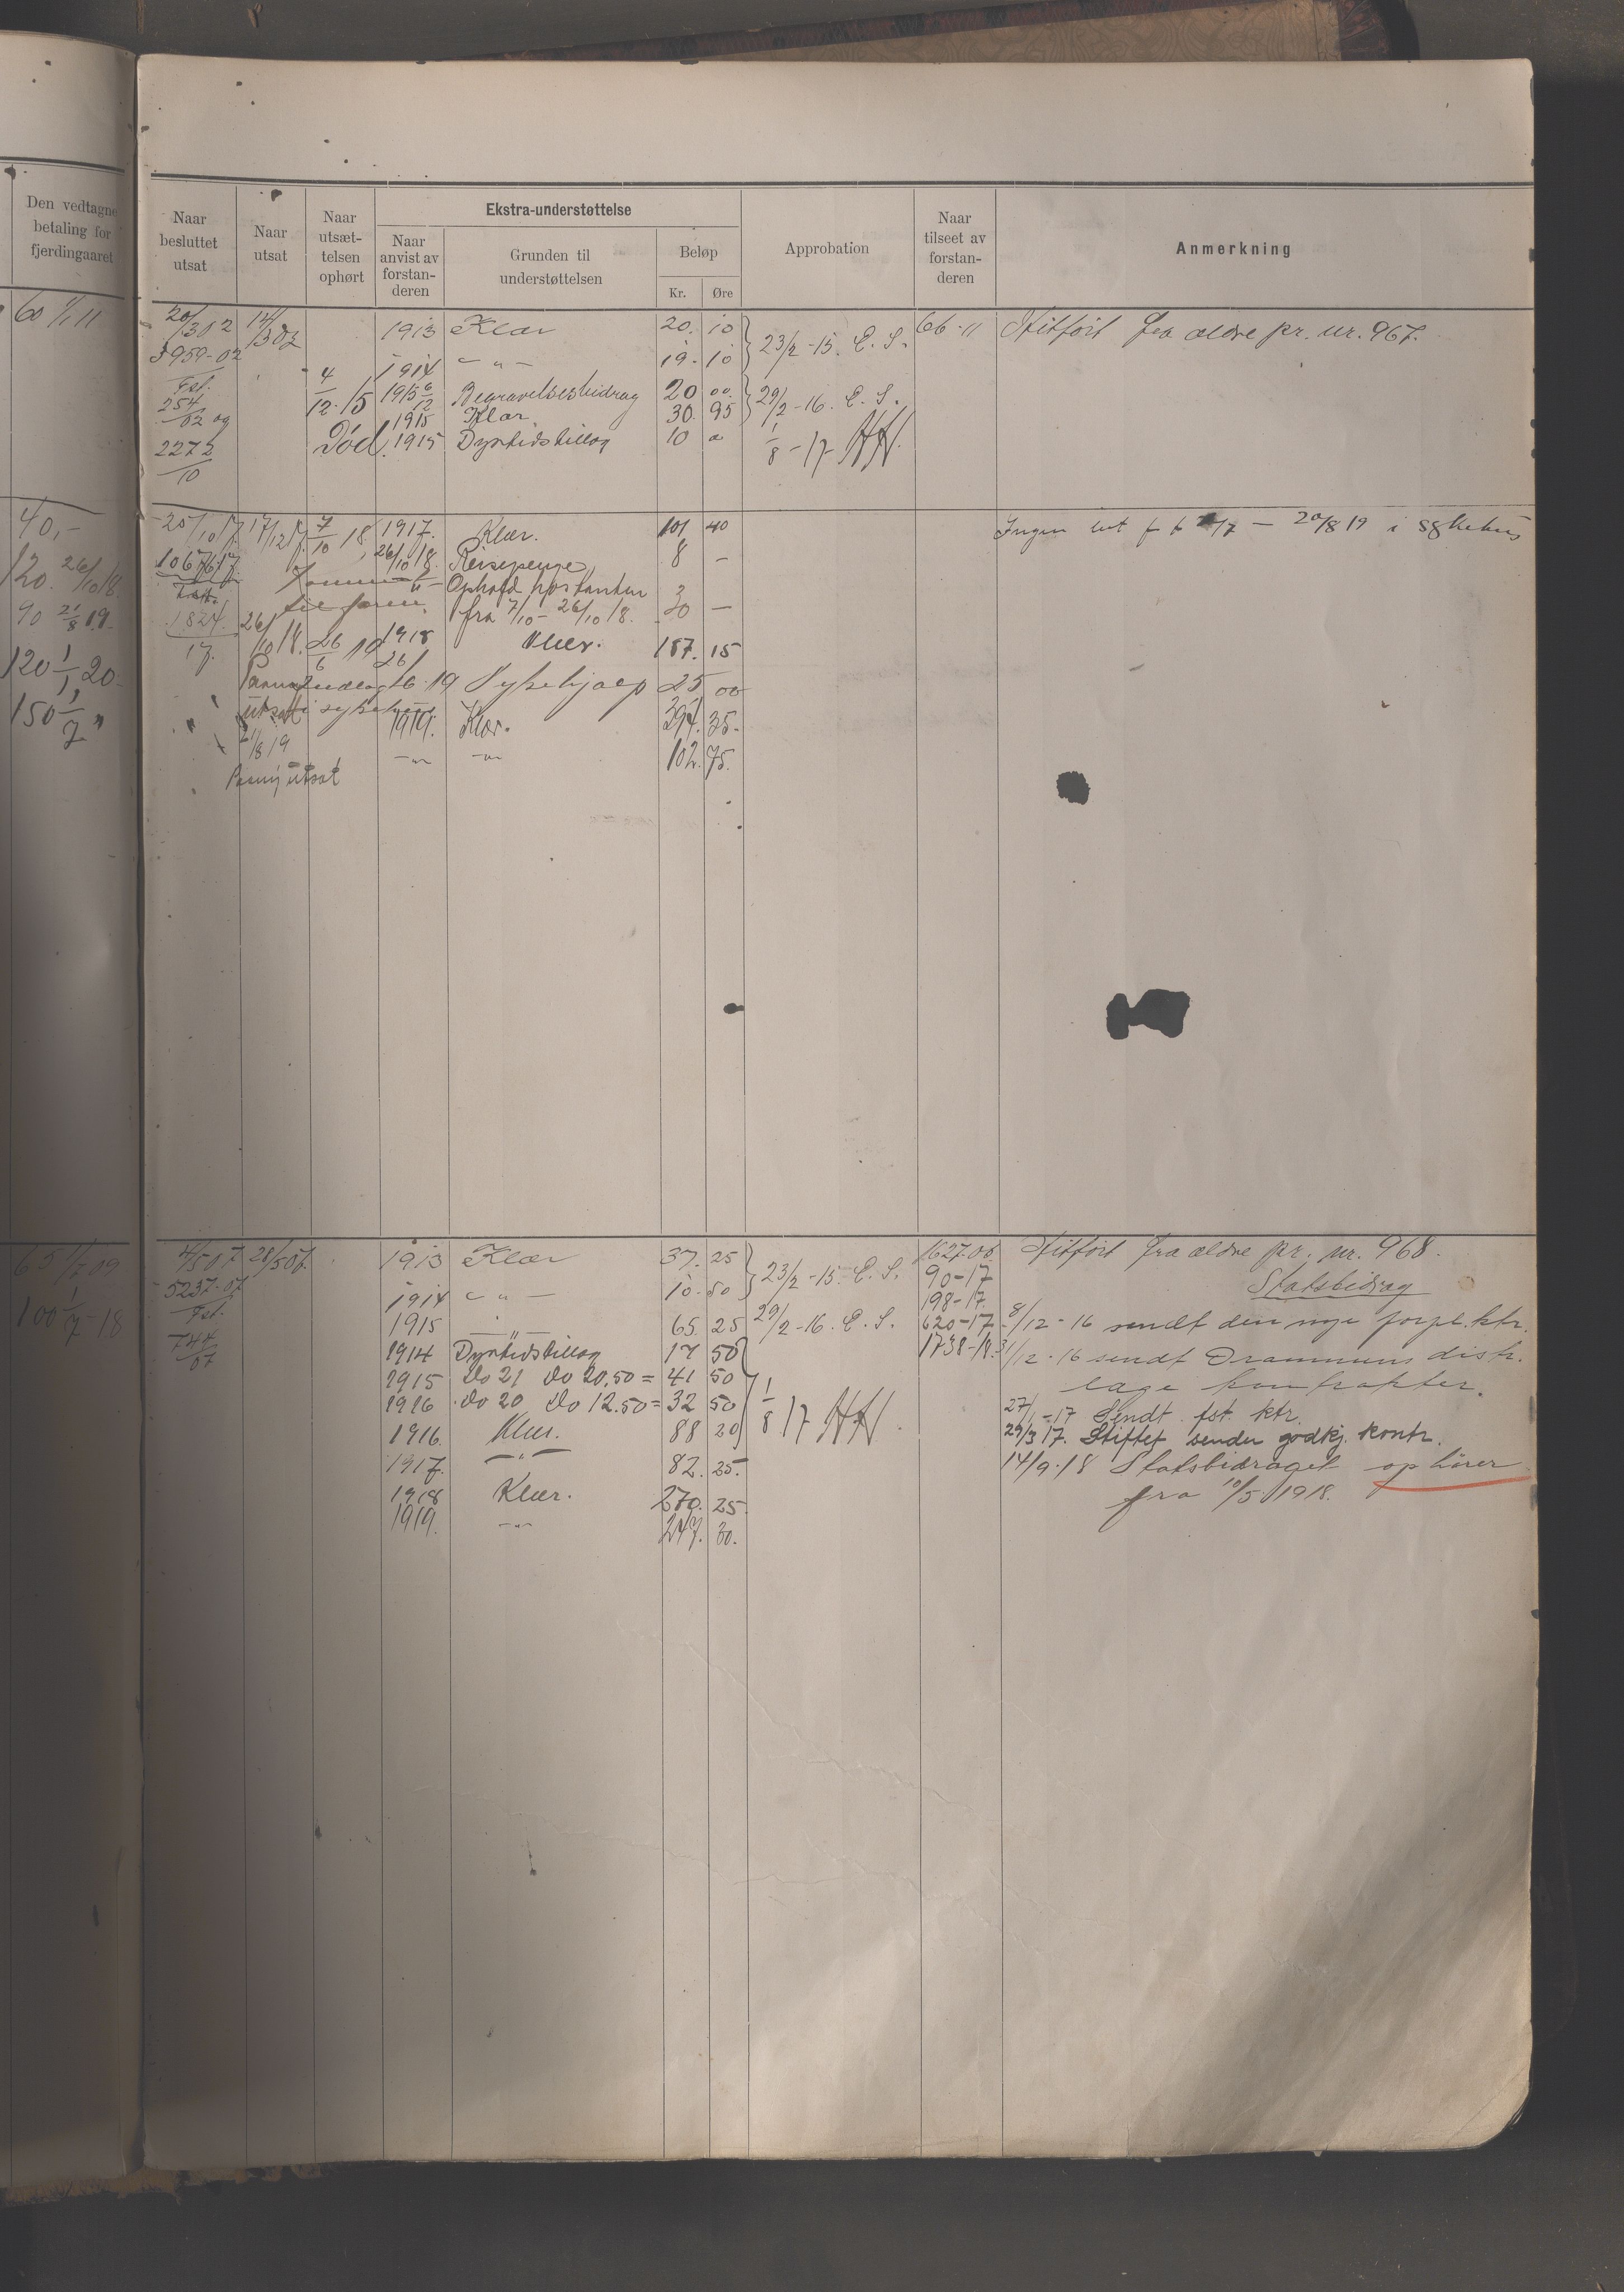 Den vedtagne
betaling for
fjerdingaaret
60 1/1 11
40,-
120. 26/10 18.
90 21/8 19
120 1/1 20
150 1/7 "
65 1/7 09
100 1/7 - 18
Naar
besluttet
utsat
Naar
utsat
Naar
utsæt-
telsen
ophørt
Ekstra-understøttelse
Naar
anvist av
forstan-
deren
Grunden til
understøttelsen
Beløp
Kr. Øre
Approbation
Naar
tilseet av
forstan-
deren
Anmerkning
20/3 02 14/3 02 1913 Klær 20. 10 23/2 - 15. E. S. 66-11 Hitført fra ældre pr. nr. 967.
3959-02 1914 — " — 19. 10
Fst. 4/12 15 1915 6/12 Begravelsesbidrag 20 00 29/2 - 16. E. S.
254/02 og 1915 Klær 30. 95
2272/10 Død. 1915 Dyrtidstillæg 10 1/8 - 17
25/10 17. 17/12 17. 7/10 18 1917. Klær. 101 40 Ingen 20/8 19 i sykehus
1067617. 26/10 18. Reisepenge 8 —
Ophold hos tanten
til faren. fra 7/10 - 26/10 18. 30 —
1824/17. 26/10 18. 26/6 19 1918 Klær. 187. 15
26/6 19 Sykehjælp 25 00
utsat i sykehus 1919. Klær. 394. 35.
21/8 19 — " — — " — 102. 75.
utsat
4/5 07 28/5 07. 1913 Klær 37. 25 23/2 - 15. E. S. 1627.08 Hitført fra ældre pr. nr. 968.
5237-07 1914 — " — 10. 50 90-17 Statsbidrag
Fst. 198-17.
744/07 1915 — " — 65. 25 29/2 - 16. E. S. 620-17 8/12 - 16 sendt den nye forpl. ktr.
1914 Dyrtidstillæg 17 50 1738-18. 31/12 - 16 sendt Drammens distr.
1915 Do 21 Do 20.50 = 41 50 læge kontrakter.
1916 Do 20 Do 12.50 = 32 50 1/8 17 27/1 - 17 Sendt fst. ktr.
1916. Klær. 88 20 29/3 17. Stiftet sender godkj. kontr.
1917. — " — 82. 25. 14/9 - 18 Statsbidraget ophører
1918 Klær. 270. 25. fra 10/5 1918.
1919. — " — 247. 30.